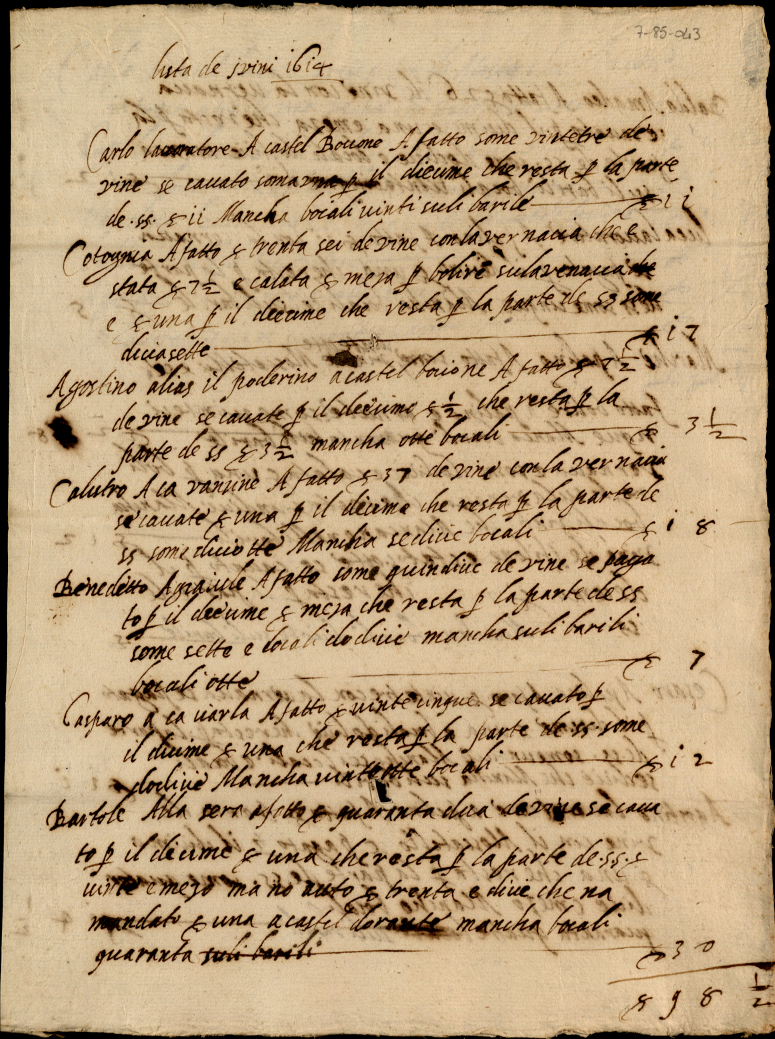 7-85-043
lista de i vini 1614
Carlo lavoratore A castel Bocione A fatto some vintetre de
vine se cavato soma una p il diecime che resta p la parte
de .ss. § ii Mancha bocali vinti suli barile § i i
Cotognia A fatto § trenta sei de vine con la vernacia che e
stata § 7 1/2 e calata § meza p bolire sula venacia che
e § una p il diecime che resta p la parte de ss some
diciasette § i 7
Agostino alias il poderino a castel bocione A fatto § 7 1/2
de vine se cavate p il decimo § 1/2 che resta p la
parte de ss § 3 1/2 mancha otte bocali § 3 1/2
Calistro A ca A fatto § 37 de vine con la vernacia
se cavate § una p il decime che resta p la parte de
ss some diciotte Mancha sedicie bocali § i 8
Benedetto A fatto some quindice de vine se paga
to p il decime § meza che resta p la parte de ss
some sette e bocali dodicie mancha suli barili
bocali otte § 7
Gasparo a ca A fatto § vinte cinque se cavato p
il dicime § una che resta p la parte de .ss. some
dodicie Mancha vinte otte bocali § i 2
Bartole Alla sera a fatto § quaranta de vine se cava
to p il decime § una che resta p la parte de .ss. §
vinte e mezo ma no auto § trenta e dice che na
mandato § una a castel mancha bocali
quaranta suli barili § 3 0
§ 9 8 1/2